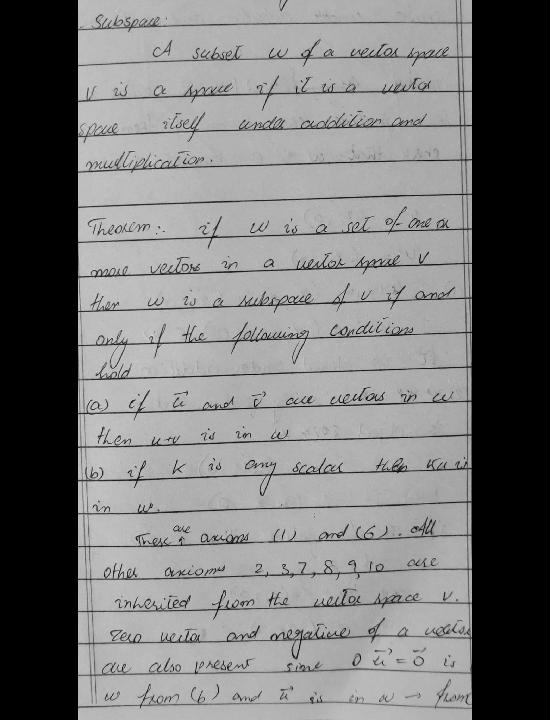 Subspace:
A subset W of a vector space
V is a space if it is a vector
space itself under addition and
multiplication.
Theorem:. if W is a set of one or
more vectors in a vector space V
then W is a subspace of V if and
only if the following conditions
hold
(a) if u⃗ and v⃗ are vectors in W
then u+v is in W
(b) if K is any scalar then Ku is
in W.
These are axioms (1) and (6). All
other axioms 2, 3, 7, 8, 9, 10 are
inherited from the vector space V.
Zero vector and negative of a vector
are also present since 0 u⃗ = 0⃗ is
W from (b) and u⃗ is in W → from